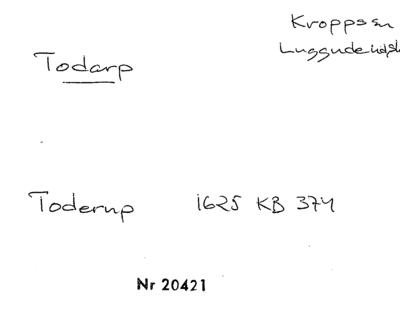 Todarp
Kropps sn
Luggude hd
Toderup 1625 KB 374
Nr 20421